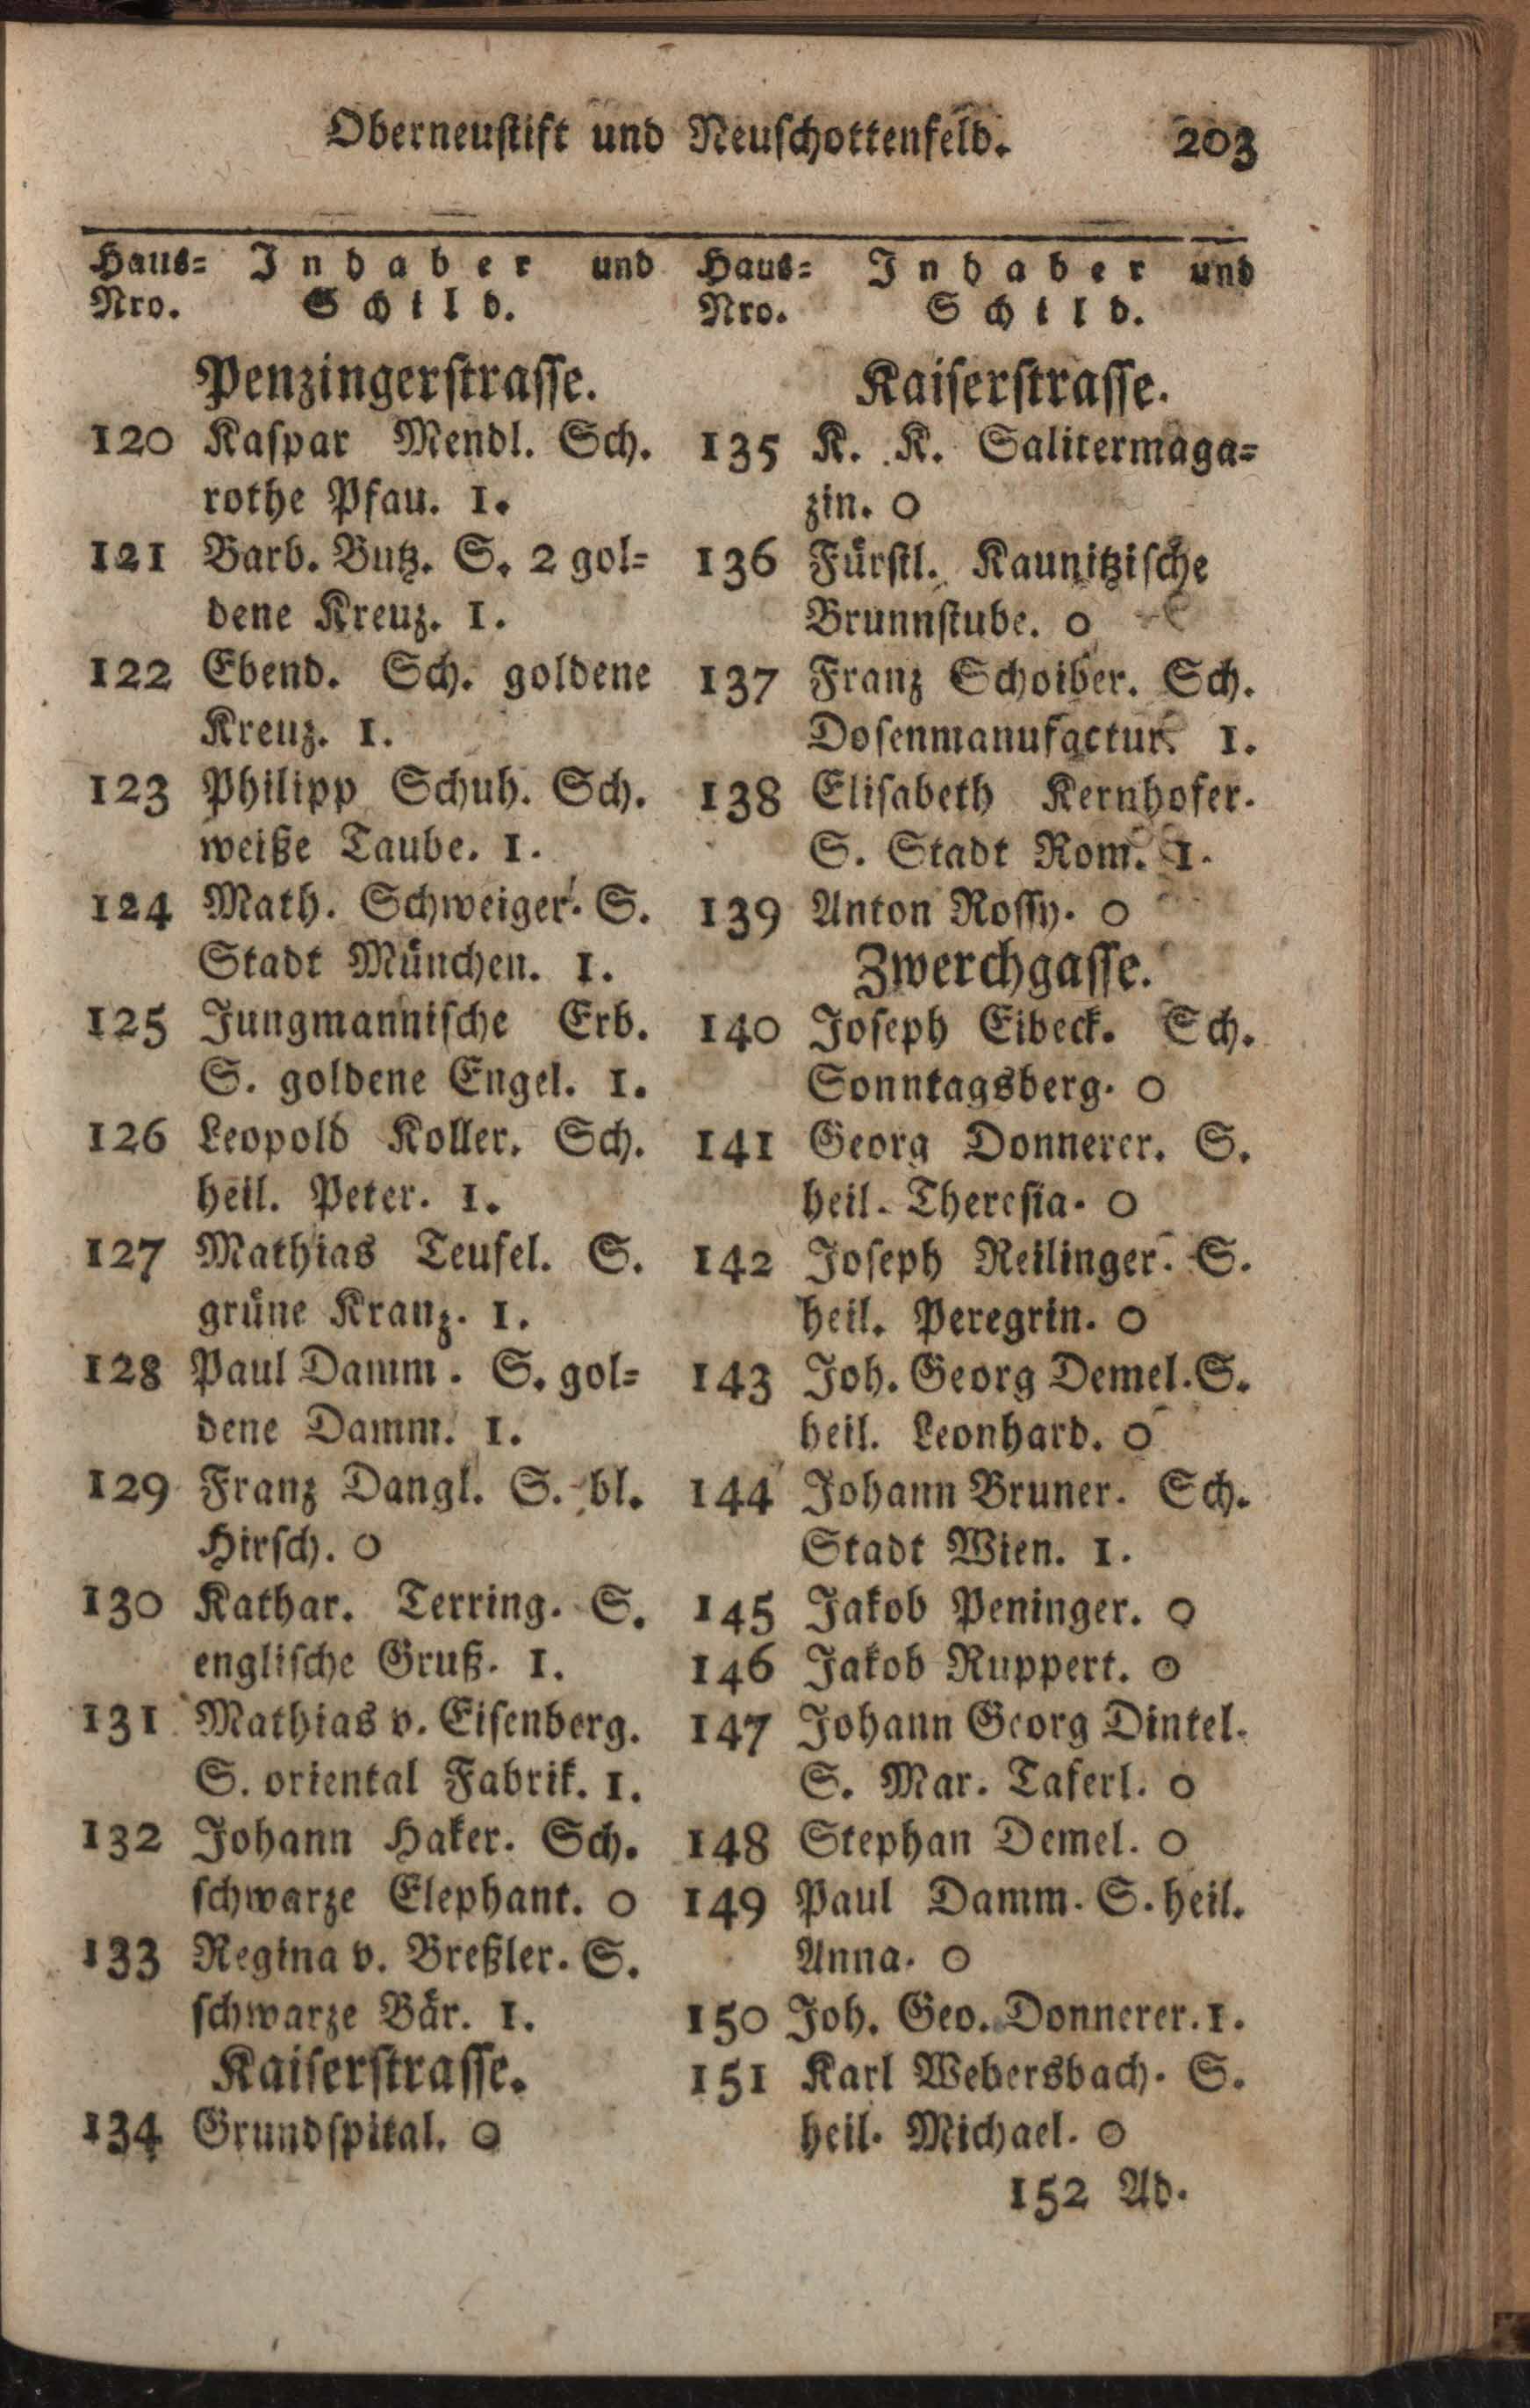 Oberneustift und Neuschottenfeld. 203
Haus= Inhaber und
Nro. Schild.
Penzingerstrasse.
120 Kaspar Mendl. Sch.
rothe Pfau. 1.
121 Barb. Butz. S. 2 gol=
dene Kreuz. 1.
122 Ebend. Sch. goldene
Kreuz. 1.
123 Philipp Schuh. Sch.
weiße Taube. 1.
124 Math. Schweiger. S.
Stadt München. 1.
125 Jungmannische Erb.
S. goldene Engel. 1.
126 Leopold Koller. Sch.
heil. Peter. 1.
127 Mathias Teufel. S.
grüne Kranz. 1.
128 Paul Damm. S. gol=
dene Damm. 1.
129 Franz Dangl. S. bl.
Hirsch. 0
130 Kathar. Terring. S.
englische Gruß. 1.
131 Mathias v. Eisenberg.
S. oriental Fabrik. 1.
132 Johann Haker. Sch.
schwarze Elephant. 0
133 Regina v. Breßler. S.
schwarze Bär. 1.
Kaiserstrasse.
134 Grundspital. 0
Haus= Inhaber und
Nro. Schild.
Kaiserstrasse.
135 K. K. Salitermaga=
zin. 0
136 Fürstl. Kaunitzische
Brunnstube. 0
137 Franz Schoiber. Sch.
Dosenmanufactur. 1.
138 Elisabeth Kernhofer.
S. Stadt Rom. 1.
139 Anton Rossy. 0
Zwerchgasse.
140 Joseph Eibeck. Sch.
Sonntagsberg. 0
141 Georg Donnerer. S.
heil. Theresia. 0
142 Joseph Reilinger. S.
heil. Peregrin. 0
143 Joh. Georg Demel. S.
heil. Leonhard. 0
144 Johann Bruner. Sch.
Stadt Wien. 1.
145 Jakob Peninger. 0
146 Jakob Ruppert. 0
147 Johann Georg Dintel.
S. Mar. Taferl. 0
148 Stephan Demel. 0
149 Paul Damm. S. heil.
Anna. 0
150 Joh. Geo. Donnerer. 1.
151 Karl Webersbach. S.
heil. Michael. 0
152 Ad.